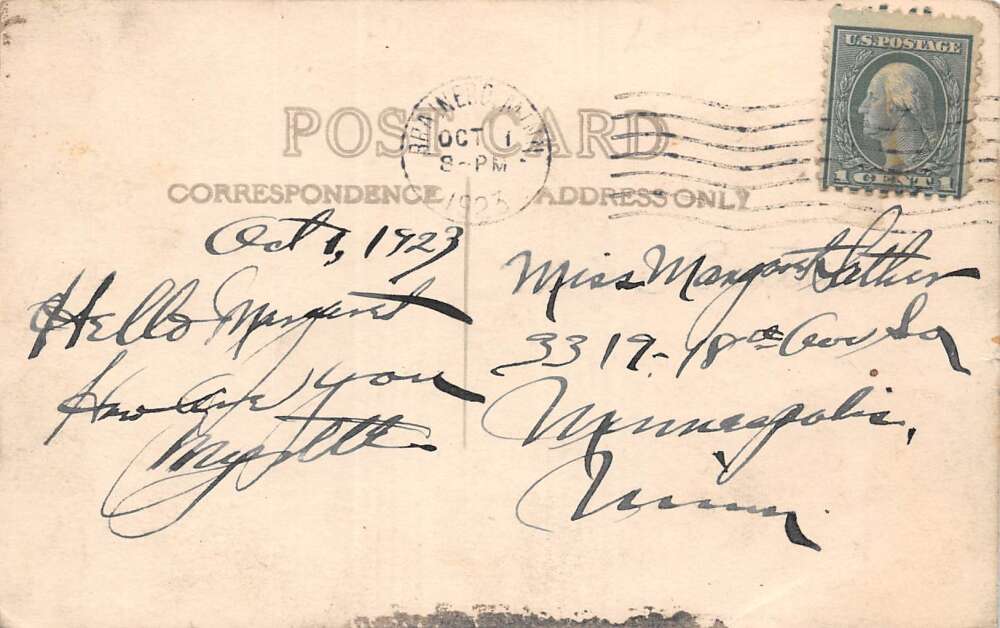 POST CARD
CORRESPONDENCE
ADDRESS ONLY
BRAINERD, MINN.
OCT 1
8-PM
1923
U.S. POSTAGE
1 CENT 1
Oct 1, 1923
Hello Margaret
How are you
Myrtle
Miss Margaret Sather
3319-18th Ave So
Minneapolis,
Minn.